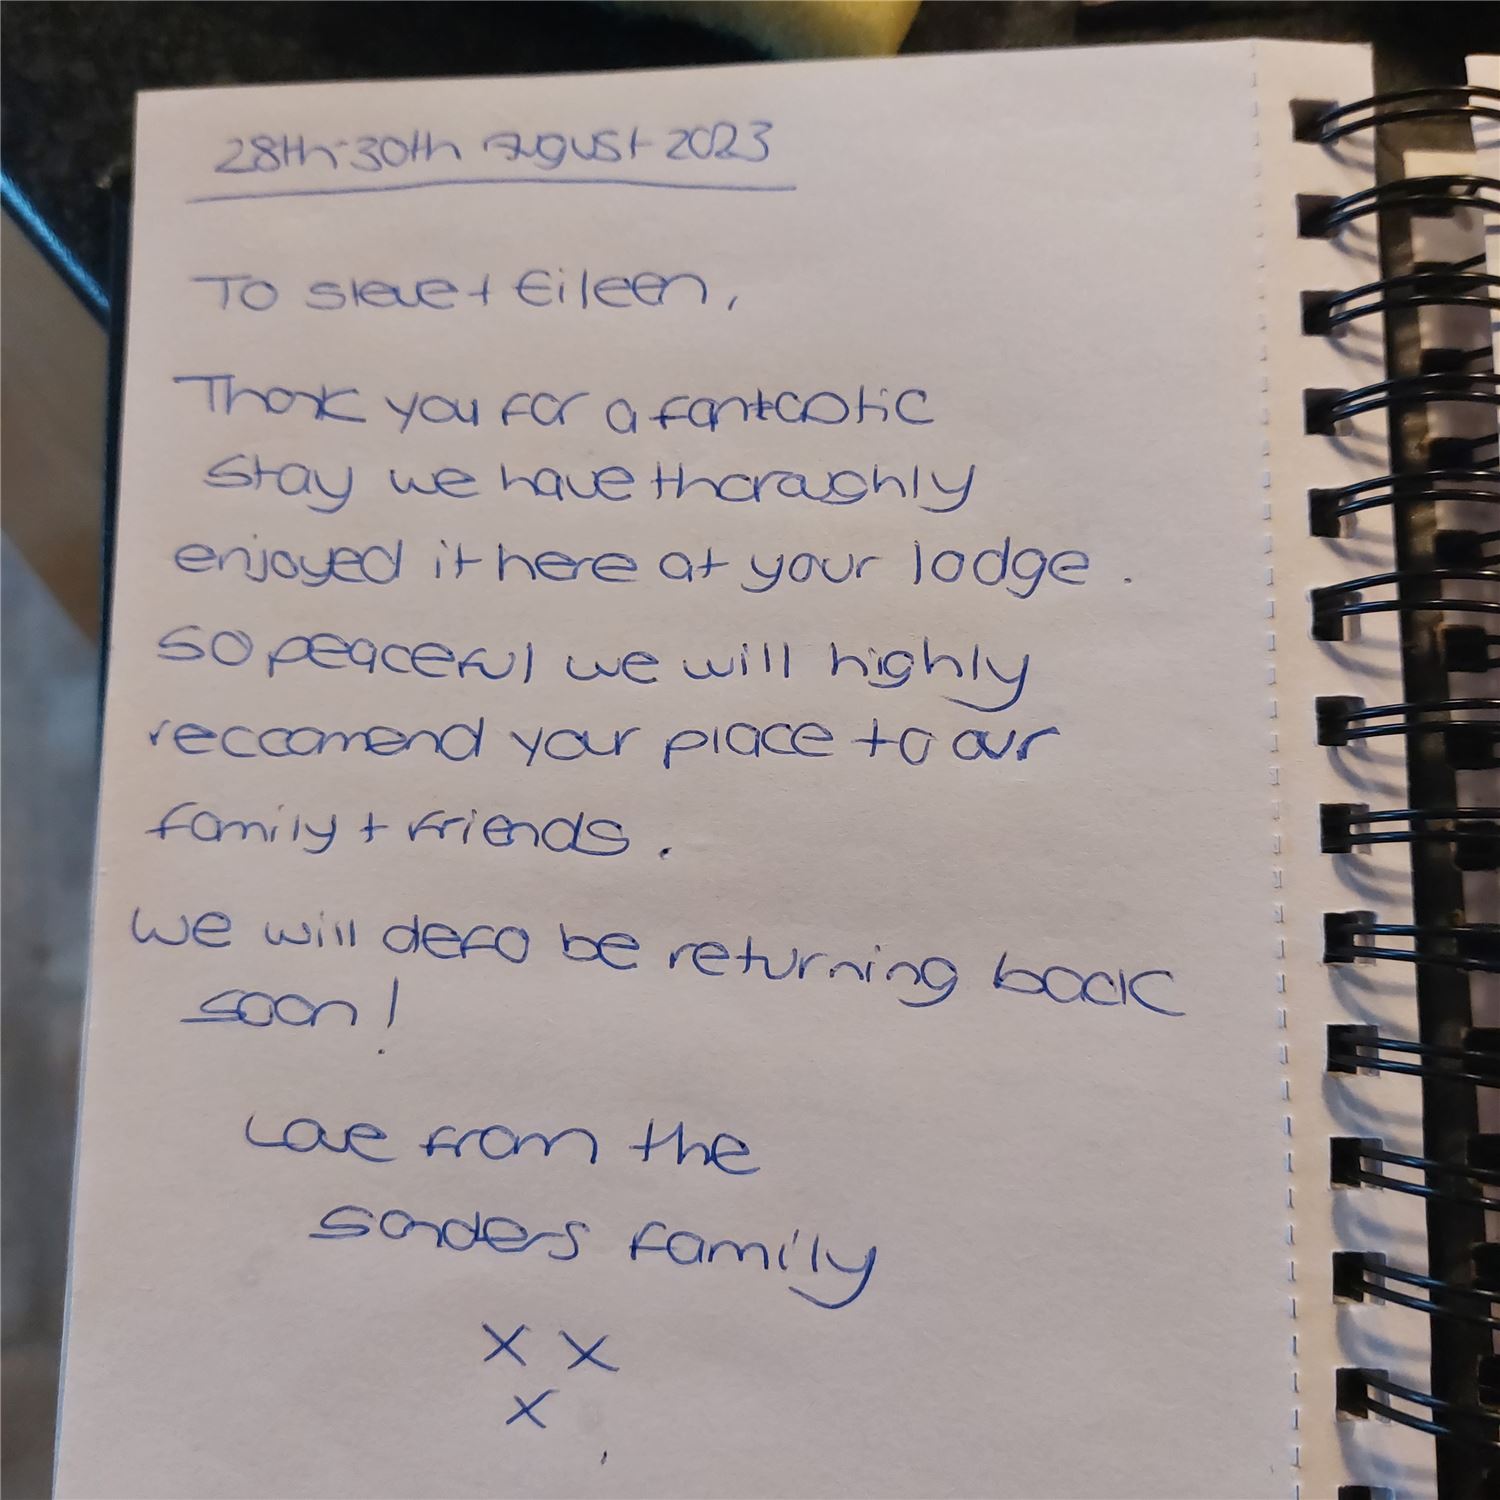 28th-30th August 2023
To Steve + Eileen,
Thank you for a fantastic
stay we have thoroughly
enjoyed it here at your lodge.
so peaceful we will highly
reccomend your place to our
family + friends.
we will defo be returning back
soon!
Love from the
Sanders family
x x
x